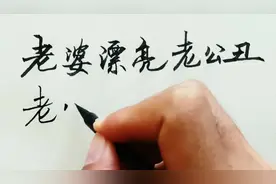 老婆漂亮老公丑
老